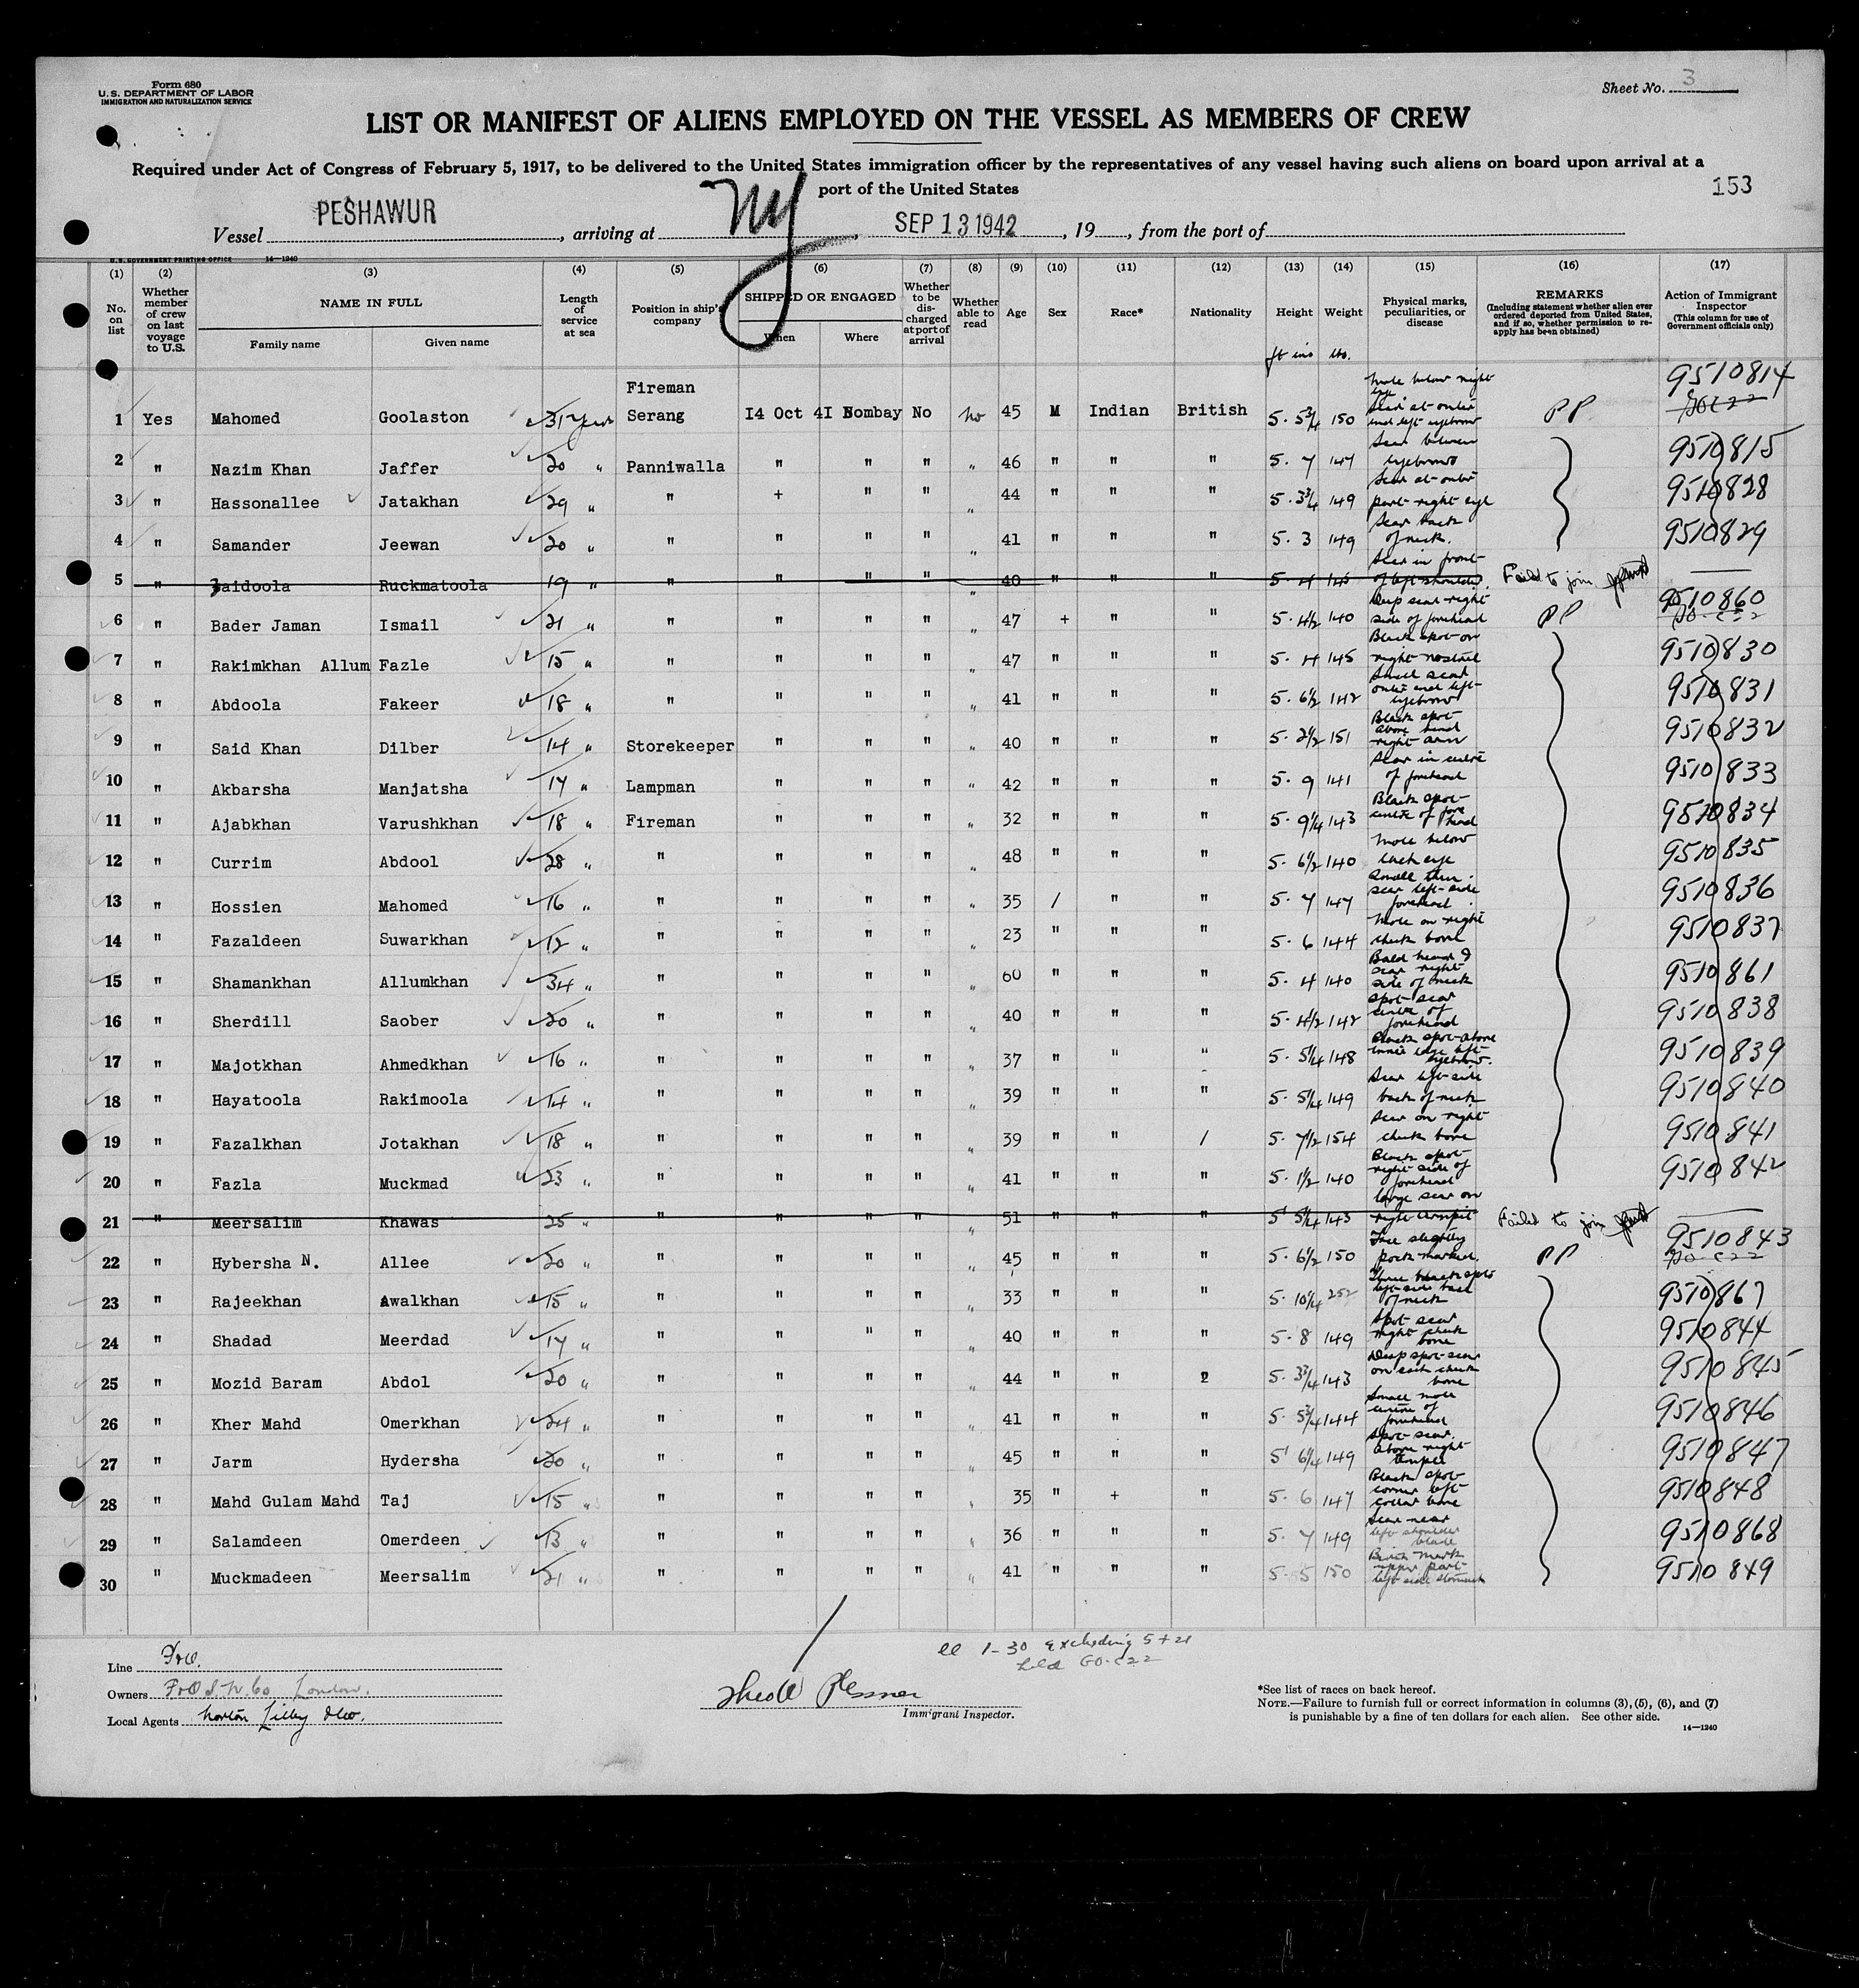 Form 680
U.S. DEPARTMENT OF LABOR
IMMIGRATION AND NATURALIZATION SERVICE
Sheet No. 3
LIST OR MANIFEST OF ALIENS EMPLOYED ON THE VESSEL AS MEMBERS OF CREW
Required under Act of Congress of February 5, 1917, to be delivered to the United States immigration officer by the representatives of any vessel having such aliens on board upon arrival at a
port of the United States
153
Vessel PESHAWUR, arriving at NY, SEP 13 1942, 19, from the port of
U.S. GOVERNMENT PRINTING OFFICE 14—1240
(1) (2) (3) (4) (5) (6) (7) (8) (9) (10) (11) (12) (13) (14) (15) (16) (17)
No. on list
Whether member of crew on last voyage to U.S.
NAME IN FULL
Family name Given name
Length of service at sea
Position in ship's company
SHIPPED OR ENGAGED
When Where
Whether to be discharged at port of arrival
Whether able to read
Age Sex Race* Nationality Height Weight
Physical marks, peculiarities, or disease
REMARKS
(Including statement whether alien ever ordered deported from United States, and if so, whether permission to reapply has been obtained)
Action of Immigrant Inspector
(This column for use of Government officials only)
ft ins lbs.
1 Yes Mahomed Goolaston 31 years Fireman Serang 14 Oct 41 Bombay No No 45 M Indian British 5. 5 3/4 150 Mole below right eye Scar at outer end left eyebrow PP 9510814
2 " Nazim Khan Jaffer 20 " Panniwalla " " " " 46 " " " 5. 7 147 Scar between eyebrows 9510815
3 " Hassonallee Jatakhan 29 " " + " " " 44 " " " 5. 3 3/4 149 Scar at outer part right eye 9510828
4 " Samander Jeewan 20 " " " " " " 41 " " " 5. 3 149 Scar back of neck. 9510829
5 " Zaidoola Ruckmatoola 19 " " " " " " 40 " " " 5. 4 145 Scar in front of left shoulder. Failed to join
6 " Bader Jaman Ismail 21 " " " " " " 47 + " " 5. 4 1/2 140 Deep scar right side of forehead PP 9510860
7 " Rakimkhan Allum Fazle 15 " " " " " " 47 " " " 5. 4 145 Black spot on right nostril 9510830
8 " Abdoola Fakeer 18 " " " " " " 41 " " " 5. 6 1/2 142 Small scar outer end left eyebrow 9510831
9 " Said Khan Dilber 14 " Storekeeper " " " " 40 " " " 5. 2 1/2 151 Black spot above bend right arm 9510832
10 " Akbarsha Manjatsha 17 " Lampman " " " " 42 " " " 5. 9 141 Scar in centre of forehead 9510833
11 " Ajabkhan Varushkhan 18 " Fireman " " " " 32 " " " 5. 9 1/4 143 Black spot centre of forehead 9510834
12 " Currim Abdool 28 " " " " " " 48 " " " 5. 6 1/2 140 Mole below each eye 9510835
13 " Hossien Mahomed 16 " " " " " " 35 / " " 5. 7 147 Small thin scar left side forehead 9510836
14 " Fazaldeen Suwarkhan 12 " " " " " " 23 " " " 5. 6 144 Mole on right cheek bone 9510837
15 " Shamankhan Allumkhan 34 " " " " " " 60 " " " 5. 4 140 Bald head & scar right side of neck 9510861
16 " Sherdill Saober 20 " " " " " " 40 " " " 5. 4 1/2 142 Spot scar centre of forehead 9510838
17 " Majotkhan Ahmedkhan 16 " " " " " " 37 " " " 5. 5 1/4 148 Black spot above inner edge left eyebrow. 9510839
18 " Hayatoola Rakimoola 14 " " " " " " 39 " " " 5. 5 1/4 149 Scar left side back of neck 9510840
19 " Fazalkhan Jotakhan 18 " " " " " " 39 " " / 5. 7 1/2 154 Scar on right cheek bone 9510841
20 " Fazla Muckmad 23 " " " " " " 41 " " " 5. 1 1/2 140 Black spot right side of forehead 9510842
21 " Meersalim Khawas 25 " " " " " " 51 " " " 5' 5 1/4 143 Large scar on right armpit Failed to join
22 " Hybersha N. Allee 20 " " " " " " 45 " " " 5. 6 1/2 150 Face slightly pock marked. PP 9510843
23 " Rajeekhan Awalkhan 15 " " " " " " 33 " " " 5. 10 1/4 252 Three black spots left side back of neck 9510867
24 " Shadad Meerdad 17 " " " " " " 40 " " " 5. 8 149 Spot scar right cheek bone 9510844
25 " Mozid Baram Abdol 20 " " " " " " 44 " " 2 5. 3 3/4 143 Deep spot scar on each cheek bone 9510845
26 " Kher Mahd Omerkhan 24 " " " " " " 41 " " " 5. 5 3/4 144 Small mole centre of forehead 9510846
27 " Jarm Hydersha 20 " " " " " " 45 " " " 5' 6 1/4 149 Spot scar. above right temple 9510847
28 " Mahd Gulam Mahd Taj 15 " " " " " " 35 " + " 5. 6 147 Black spot corner left collar bone 9510848
29 " Salamdeen Omerdeen 13 " " " " " " 36 " " " 5. 7 149 Scar near left shoulder blade 9510868
30 " Muckmadeen Meersalim 21 " " " " " " 41 " " " 5. 5 150 Birth mark upper part left side stomach 9510849
Line P&O.
Owners P&O S.N. Co London.
Local Agents Norton Lilly & Co.
1-30 excluding 5 + 21
held GO-C22
Immigrant Inspector.
*See list of races on back hereof.
NOTE.—Failure to furnish full or correct information in columns (3), (5), (6), and (7)
is punishable by a fine of ten dollars for each alien. See other side.
14—1240